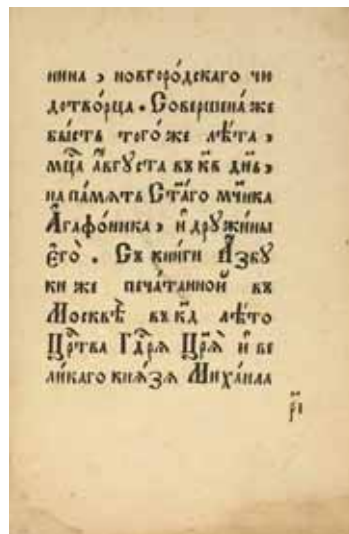 нина , новгоро́дскаго чю
дотво́рца . Соверше́на же
бы́сть того́ же лѣ́та ,
мц҃а а҆́вгꙋста въ к҃в дн҃ь ,
на па́мять Ст҃а́го мч҃ника
А҆гафо́ника , и҆ дрꙋжи́ны
є҆гѡ̀ . Съ кни́ги А҆́збꙋ
ки же печа́танной въ
Москвѣ̀ въ к҃д лѣ́то
Црⷭ҇тва Гдⷭ҇ря Цр҃ѧ̀ и҆ ве
ли́каго кнѧ́зѧ Михаи́ла